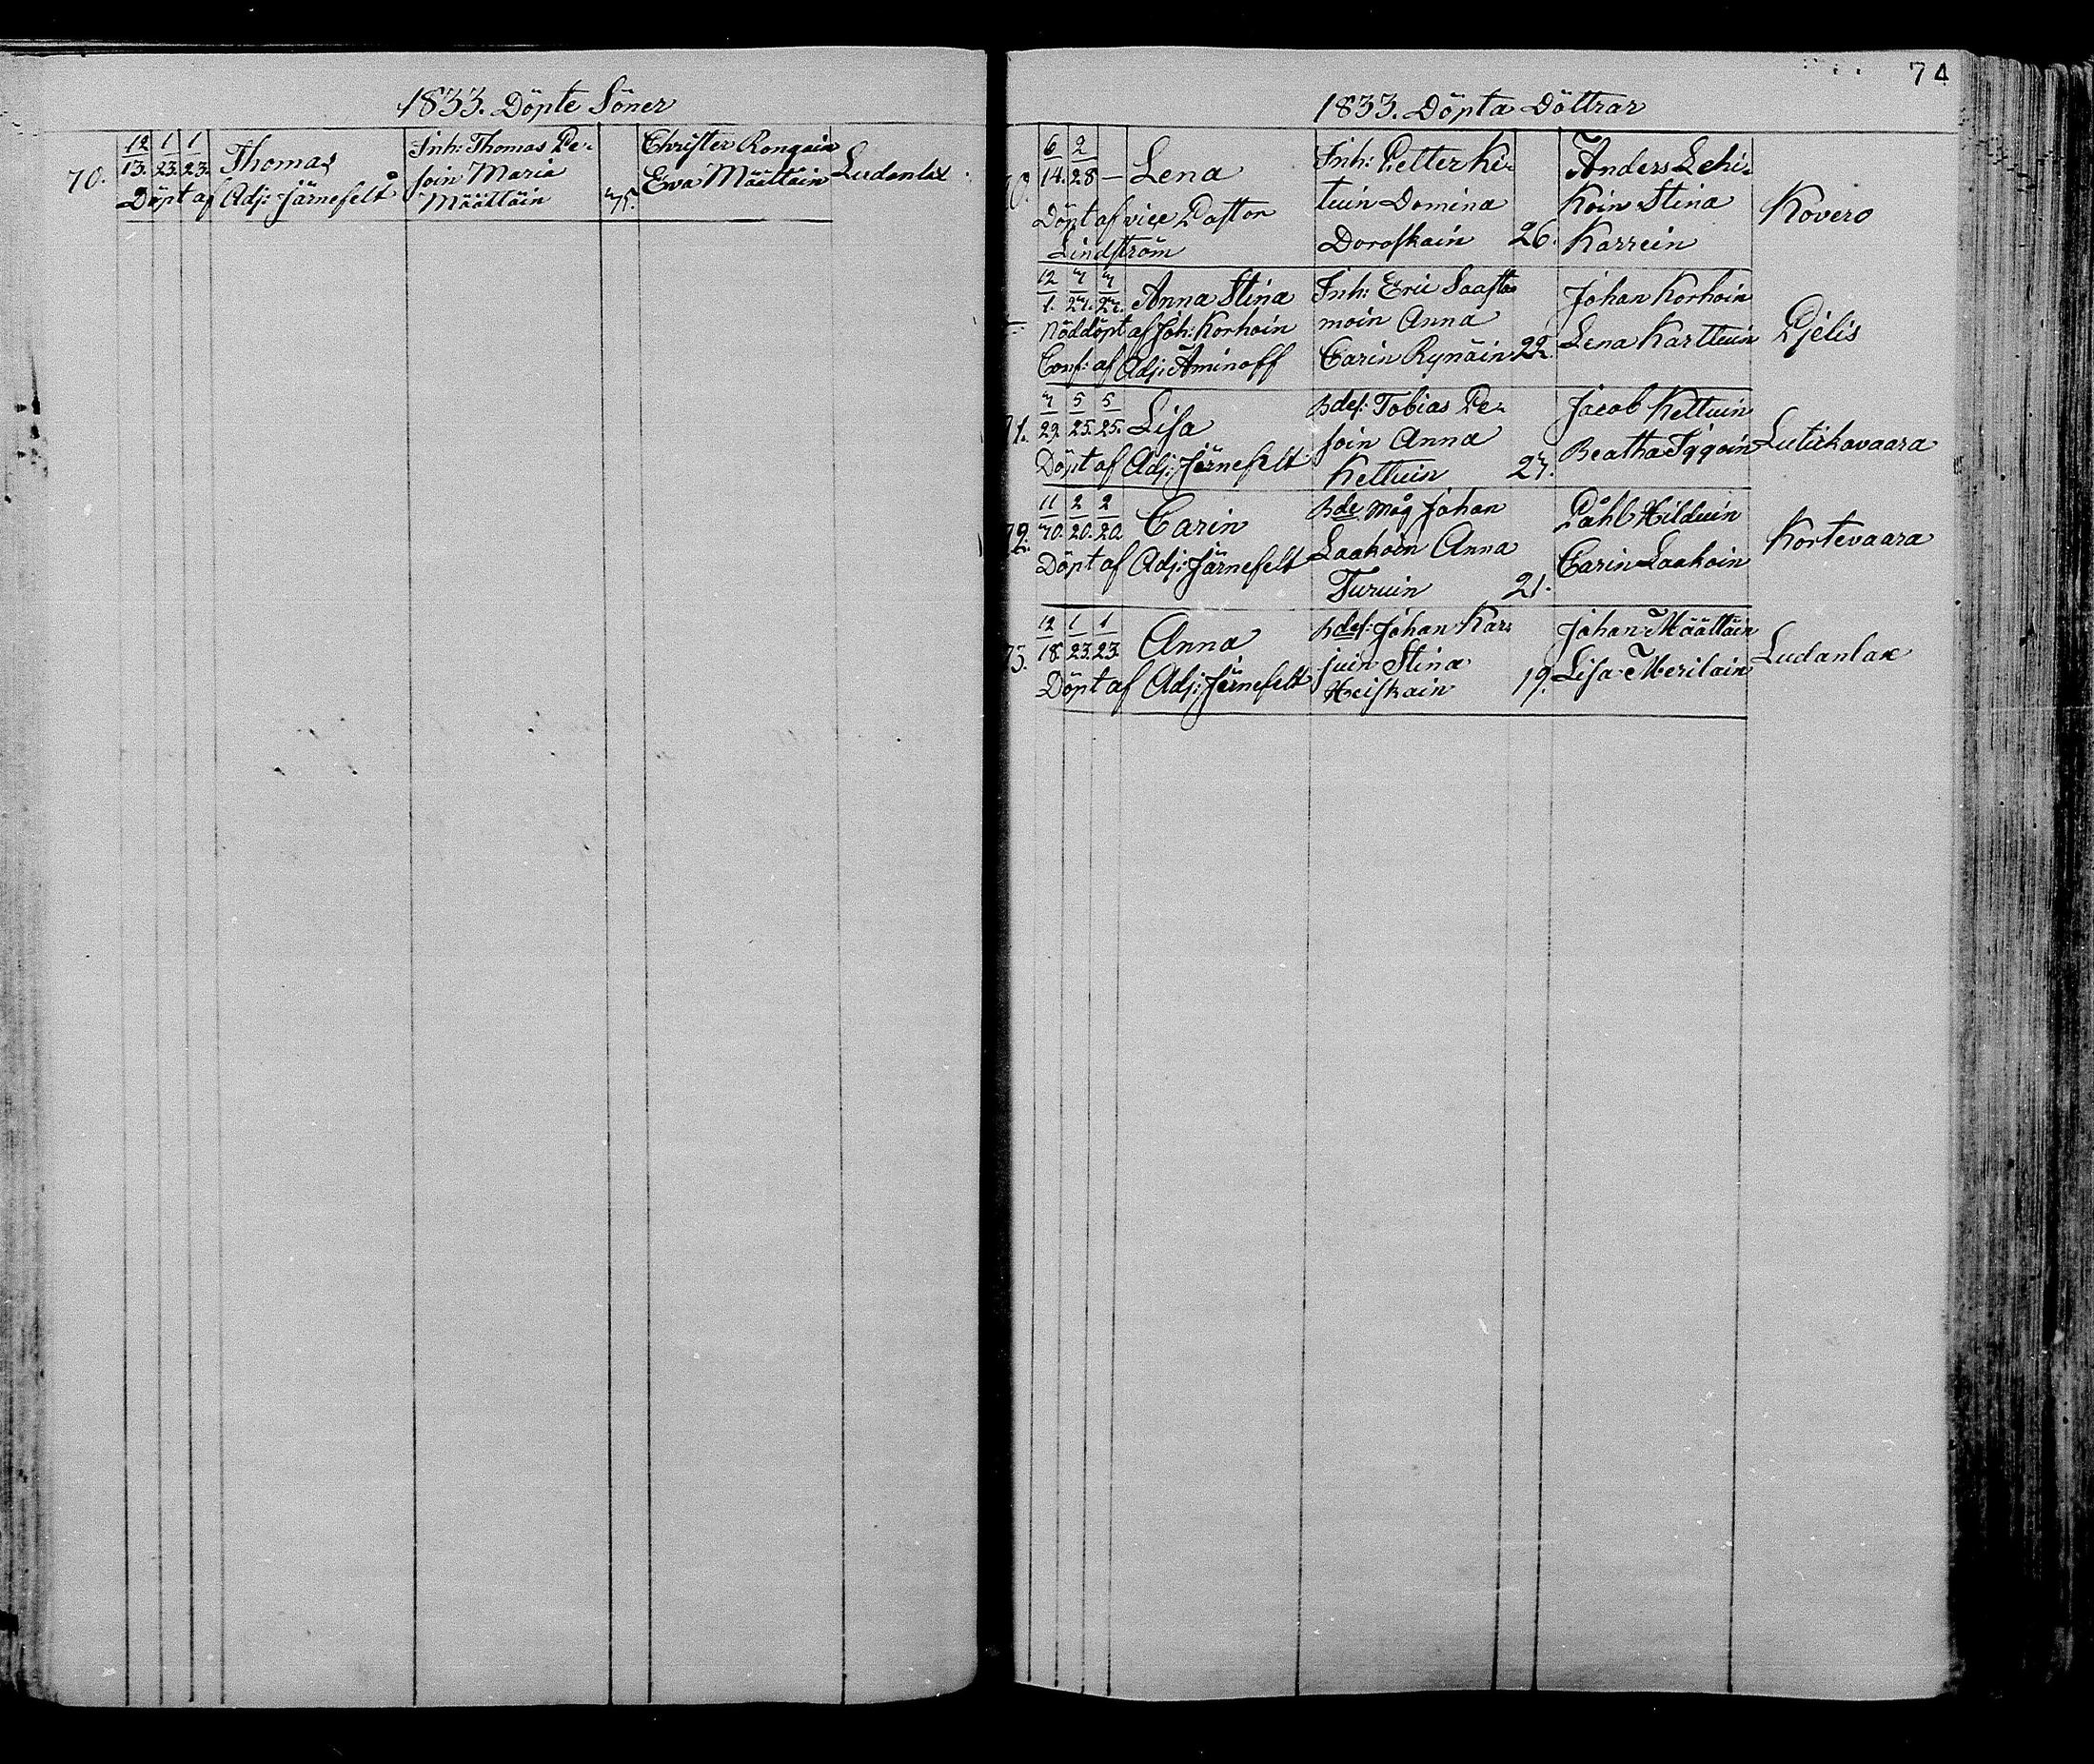 74
1833. Döpte Söner
70. 12/13. 1/23. 1/23. Thomas
Döpt af Adj: Järnefelt
Inh: Thomas Pe-
soin Maria
Määttäin
Christer Rongain
Eva Määttäin
Ludanlax
1833. Döpta Döttrar
6/14. 2/28 — Lena
Döpt af vice Pastor
Lindström
Inh: Petter Ki-
tuin Domina
Dorofkain 26.
Anders Lehi-
koin Stina
Karrein
Kovero
12/1. 7/27. 7/27. Anna Stina
Nöddöpt af Joh: Korhoin
Conf: af Adj: Aminoff
Inh: Eric Saasta
moin Anna
Carin Rynäin 22.
Johan Korhoin
Lena Karttuin
Pjelis
71. 7/29. 5/25. 5/25. Lisa
Döpt af Adj: Järnefelt
Bdes: Tobias Pe-
soin Anna
Kettuin 27.
Jacob Kettuin
Beatha Iqqoin
Lutikavaara
72. 11/10. 2/20. 2/20. Carin
Döpt af Adj: Järnefelt
Bde Måg Johan
Laakoin Anna
Turuin 21.
Påhl Hilduin
Carin Laakoin
Kortevaara
73. 12/18. 1/23. 1/23. Anna
Döpt af Adj: Järnefelt
Bdes: Johan Kar-
juin Stina
Heiskain 19.
Johan Määttäin
Lisa Meriläin
Ludanlax